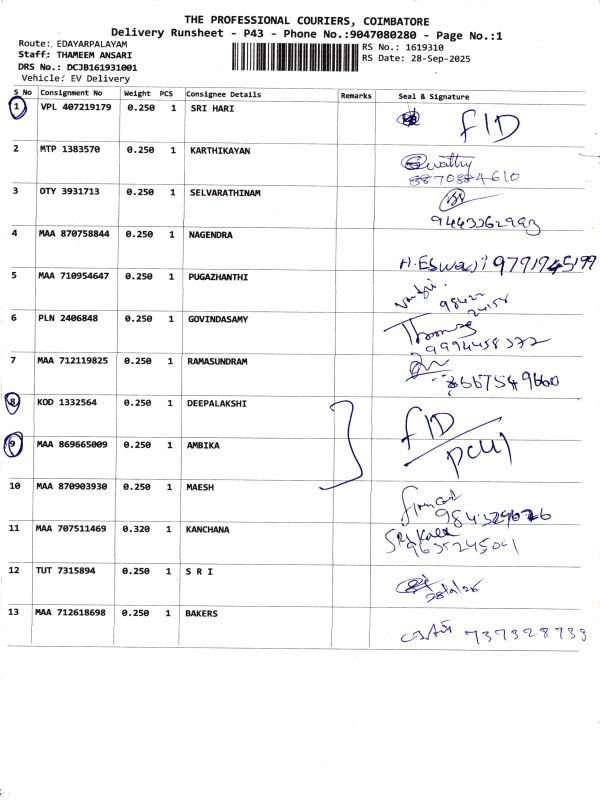 THE PROFESSIONAL COURIERS, COIMBATORE
Delivery Runsheet - P43 - Phone No.:9047080280 - Page No.:1
Route: EDAYARPALAYAM
Staff: THAMEEM ANSARI
DRS No.: DCJB161931001
Vehicle: EV Delivery
RS No.: 1619310
RS Date: 28-Sep-2025
S No Consignment No Weight PCS Consignee Details Remarks Seal & Signature
1 VPL 407219179 0.250 1 SRI HARI FID
2 MTP 1383570 0.250 1 KARTHIKAYAN
3 OTY 3931713 0.250 1 SELVARATHINAM
4 MAA 870758844 0.250 1 NAGENDRA
5 MAA 710954647 0.250 1 PUGAZHANTHI
6 PLN 2406848 0.250 1 GOVINDASAMY
7 MAA 712119825 0.250 1 RAMASUNDRAM
8 KOD 1332564 0.250 1 DEEPALAKSHI FID
9 MAA 869665009 0.250 1 AMBIKA
10 MAA 870903930 0.250 1 MAESH
11 MAA 707511469 0.320 1 KANCHANA
12 TUT 7315894 0.250 1 S R I
13 MAA 712618698 0.250 1 BAKERS